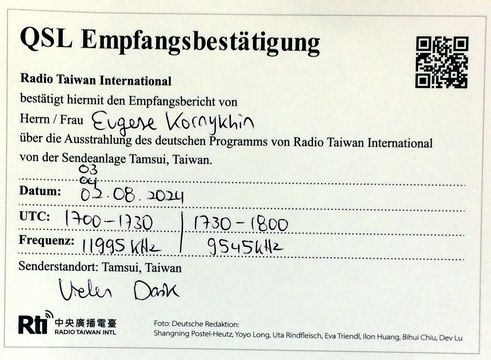 QSL Empfangsbestätigung
Radio Taiwan International
bestätigt hiermit den Empfangsbericht von
Herrn / Frau Eugene Kornykhin
über die Ausstrahlung des deutschen Programms von Radio Taiwan International
von der Sendeanlage Tamsui, Taiwan.
03
04
Datum: 02.08.2024
UTC: 1700-1730 | 1730-1800
Frequenz: 11995 kHz | 9545 kHz
Senderstandort: Tamsui, Taiwan
Vielen Dank
Rti 中央廣播電臺
RADIO TAIWAN INTL
Foto: Deutsche Redaktion:
Shangning Postel-Heutz, Yoyo Long, Uta Rindfleisch, Eva Triendl, Ilon Huang, Bihui Chiu, Dev Lu